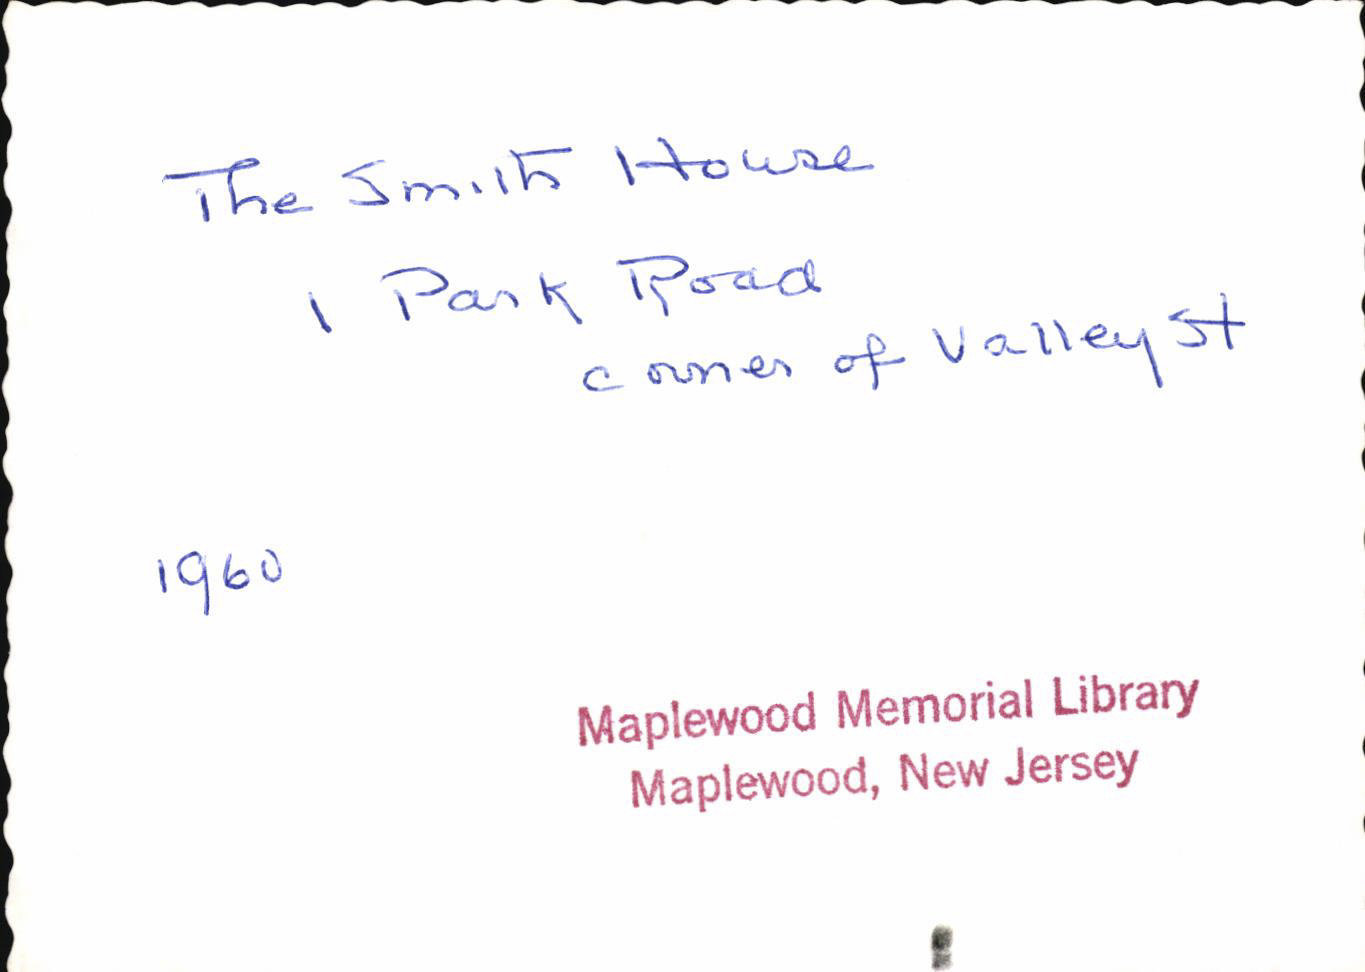 The Smith House
1 Park Road
corner of Valley St
1960
Maplewood Memorial Library
Maplewood, New Jersey